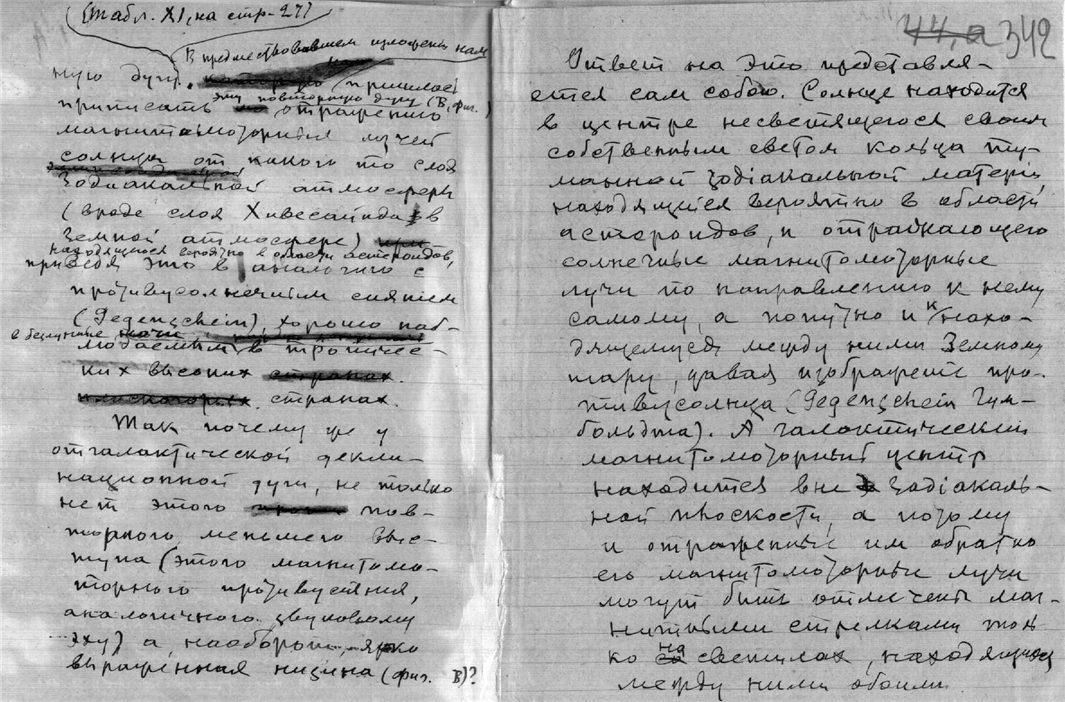 (табл. XI, на стр. 27)
В предшествовавшем изложении нам
ную дугу. пришлось
приписать эту повторную дугу (В, фиг. )
отражению
магнитомоторных лучей
солнца от какого то слоя
Зодиакальной атмосферы
(вроде слоя Хивесайида в
Земной атмосфере)
находящегося вероятно в области астероидов,
приведя это в аналогию с
противусолнечным сиянием
(Gegenschein), хорошо наб-
в безлунные ночи
людаемым в тропичес-
ких высоких странах.
странах.
Так почему же у
отгалактической декли-
национной дуги, не только
нет этого пов-
торного, меньшего выс-
тупа (этого магнитомо-
торного противусияния,
аналогичного звуковому
эху) а, наоборот ярко
выраженная низина (фиг. В)?
44, а 342
Ответ на это представля-
ется сам собою. Солнце находится
в центре несветящегося своим
собственным светом кольца ту-
манной зодіакальной матеріи,
находящейся вероятно в области
астероидов, и отражающего
солнечные магнитомоторные
лучи по направлению к нему
самому, а попутно и к нахо-
дящемуся между ними Земному
шару, давая изображение про-
тивусолнца (Gegenschein Гум-
больдта). А галактический
магнитомоторный центр
находится вне зодіакаль-
ной плоскости, а потому
и отраженные им обратно
его магнитомоторные лучи
могут быть отмечены маг-
нитными стрелками толь
ко на светилах, находящихся
между ними обоими.